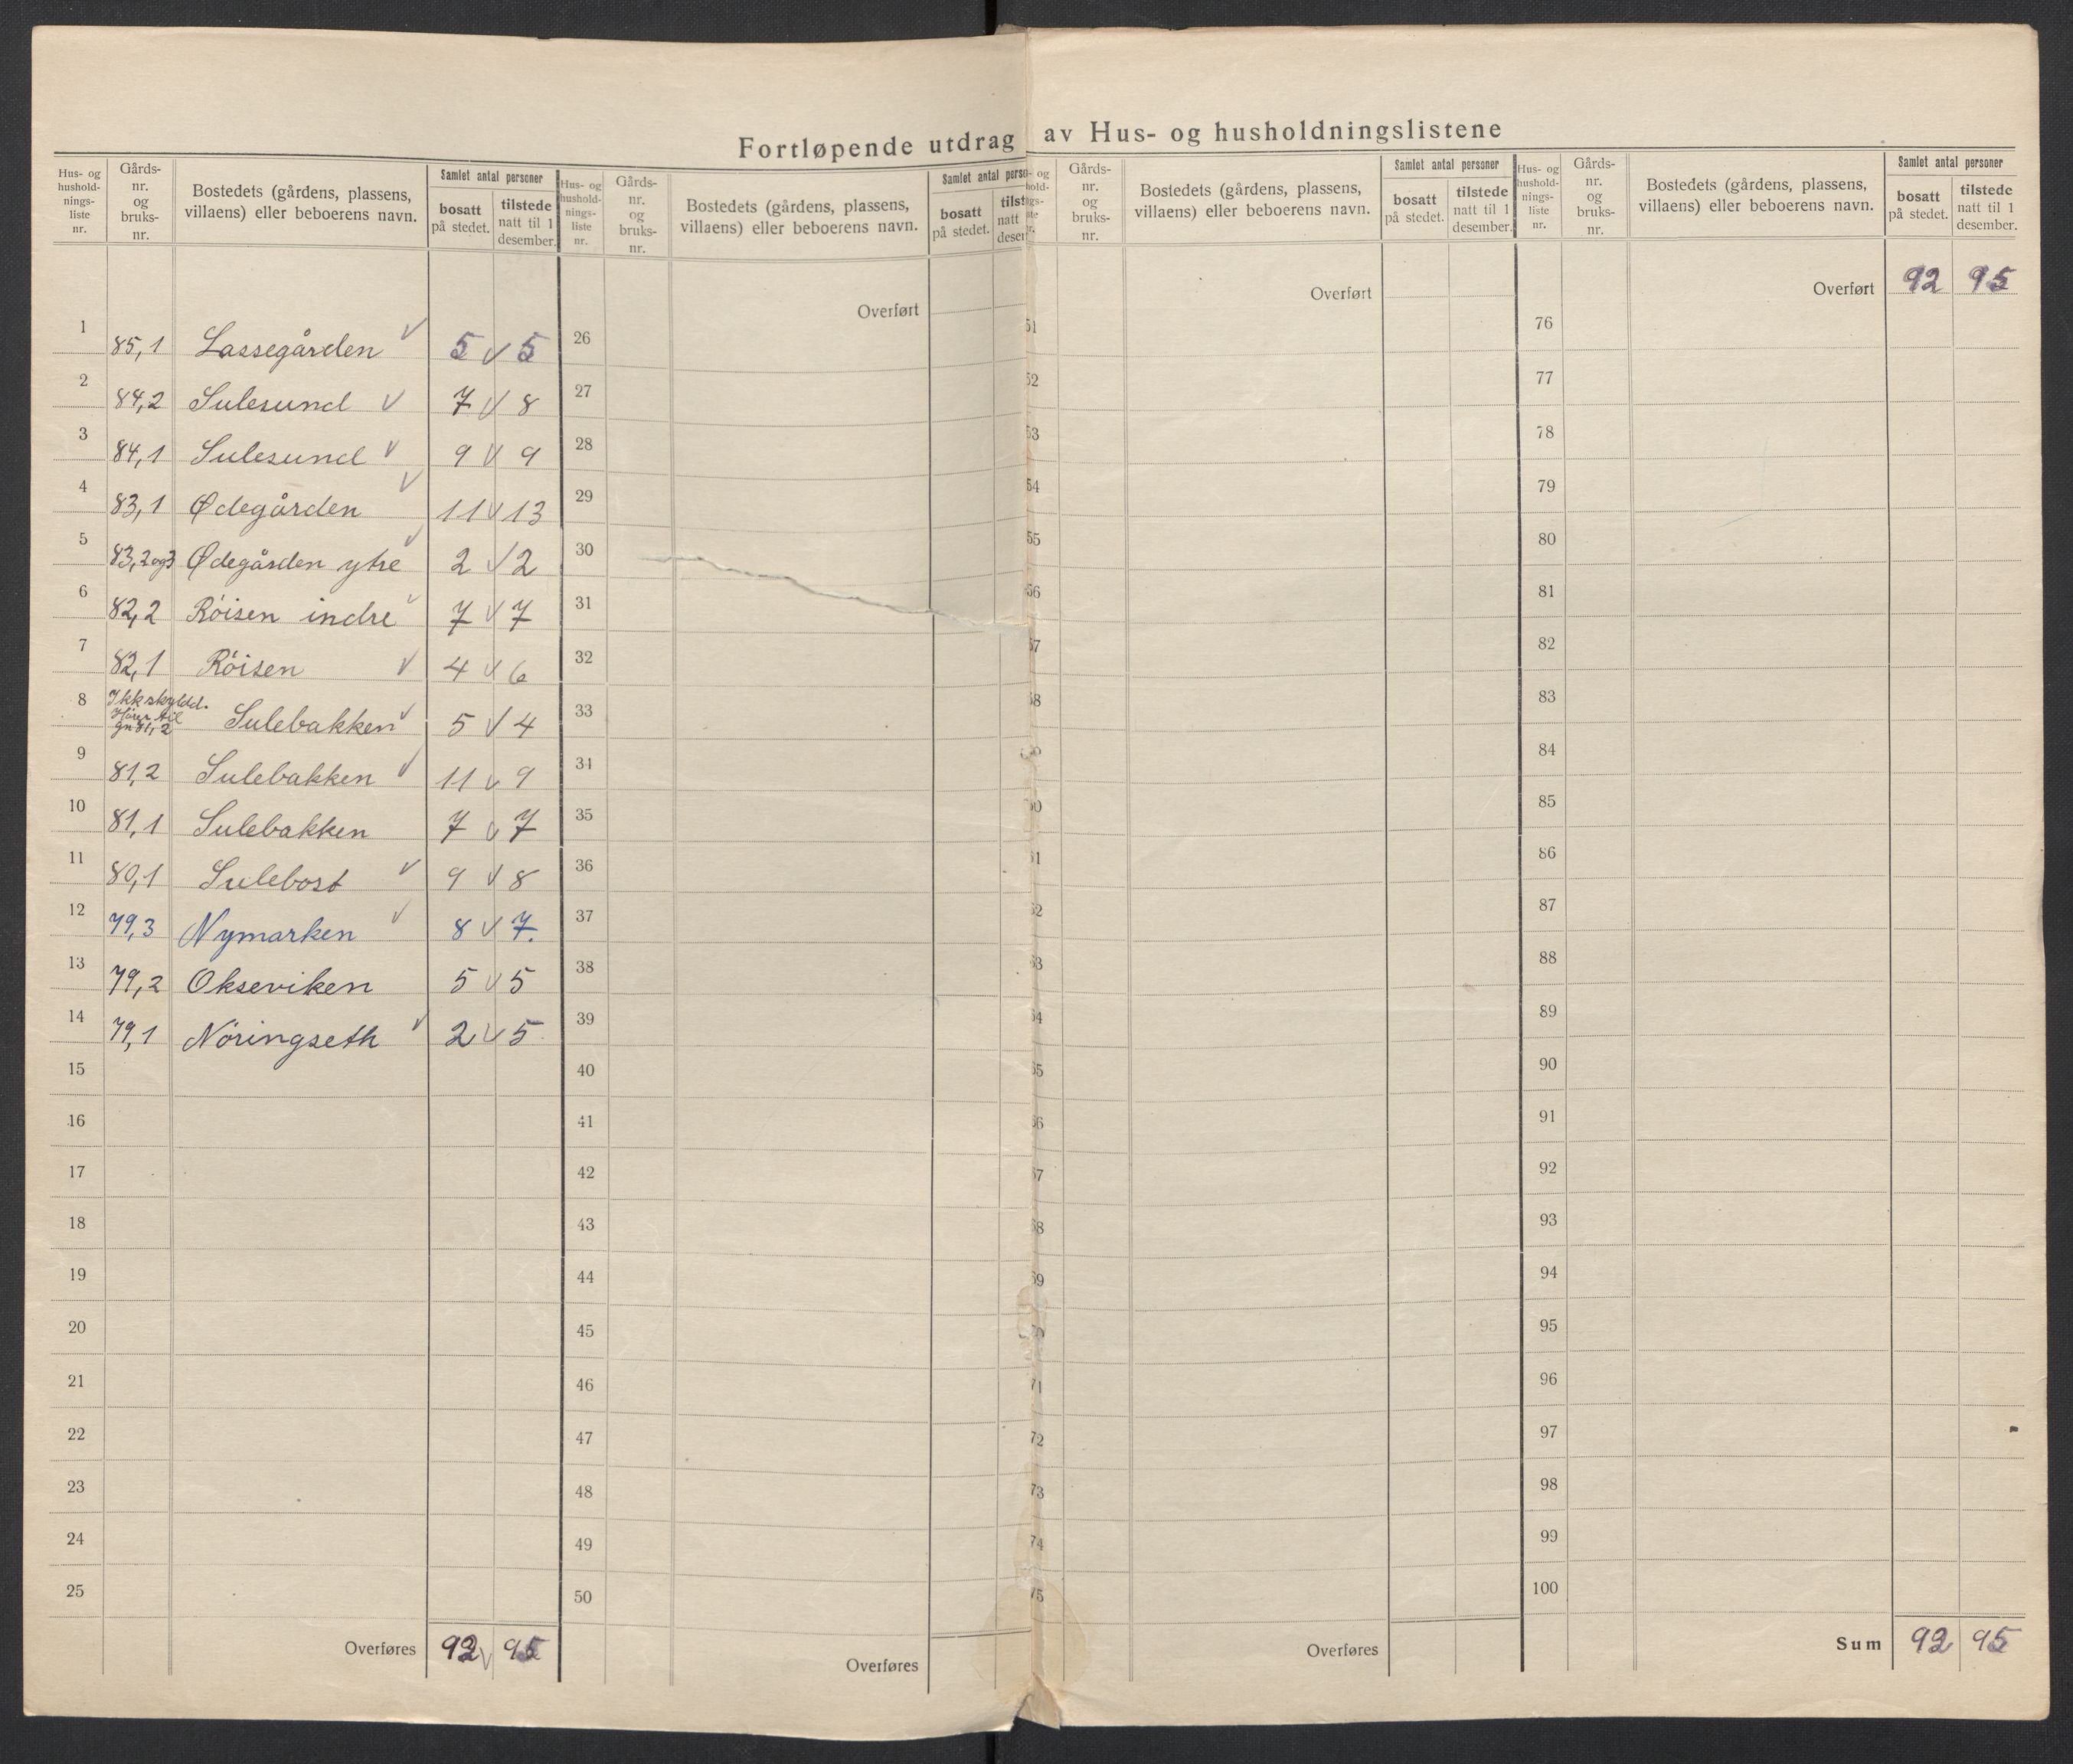 Fortløpende utdrag av Hus- og husholdningslistene
Hus- og hushold- nings- liste nr.
Gårds- nr. og bruks- nr.
Bostedets (gårdens, plassens, villaens) eller beboerens navn.
Samlet antal personer
bosatt på stedet.
tilstede natt til 1 desember.
1 85,1 Lassegården 5 5
2 84,2 Sulesund 7 8
3 84,1 Sulesund 9 9
4 83,1 Ødegården 11 13
5 83,2og3 Ødegården ytre 2 2
6 82,2 Röisen indre 7 7
7 82,1 Röisen 4 6
8 Ikkskyldd. Hører til gn 81,2 Sulebakken 5 4
9 81,2 Sulebakken 11 9
10 81,1 Sulebakken 7 7
11 80,1 Sulebost 9 8
12 79,3 Nymarken 8 7.
13 79,2 Okseviken 5 5
14 79,1 Nöringseth 2 5
15
16
17
18
19
20
21
22
23
24
25
Overføres 92 95
Hus- og hushold- nings- liste nr.
Gårds- nr. og bruks- nr.
Bostedets (gårdens, plassens, villaens) eller beboerens navn.
Samlet antal perso
bosatt på stedet.
tilst natt deser
Overført
26
27
28
29
30
31
32
33
34
35
36
37
38
39
40
41
42
43
44
45
46
47
48
49
50
Overføres
- og hold- ngs- ste r.
Gårds- nr. og bruks- nr.
Bostedets (gårdens, plassens, villaens) eller beboerens navn.
Samlet antal personer
bosatt på stedet.
tilstede natt til 1 desember.
Overført
51
52
53
54
55
56
57
58
60
61
62
63
64
65
66
67
68
69
70
71
72
73
74
75
Overføres
Hus- og hushold- nings- liste nr.
Gårds- nr. og bruks- nr.
Bostedets (gårdens, plassens, villaens) eller beboerens navn.
Samlet antal personer
bosatt på stedet.
tilstede natt til 1 desember.
Overført 92 95
76
77
78
79
80
81
82
83
84
85
86
87
88
89
90
91
92
93
94
95
96
97
98
99
100
Sum 92 95